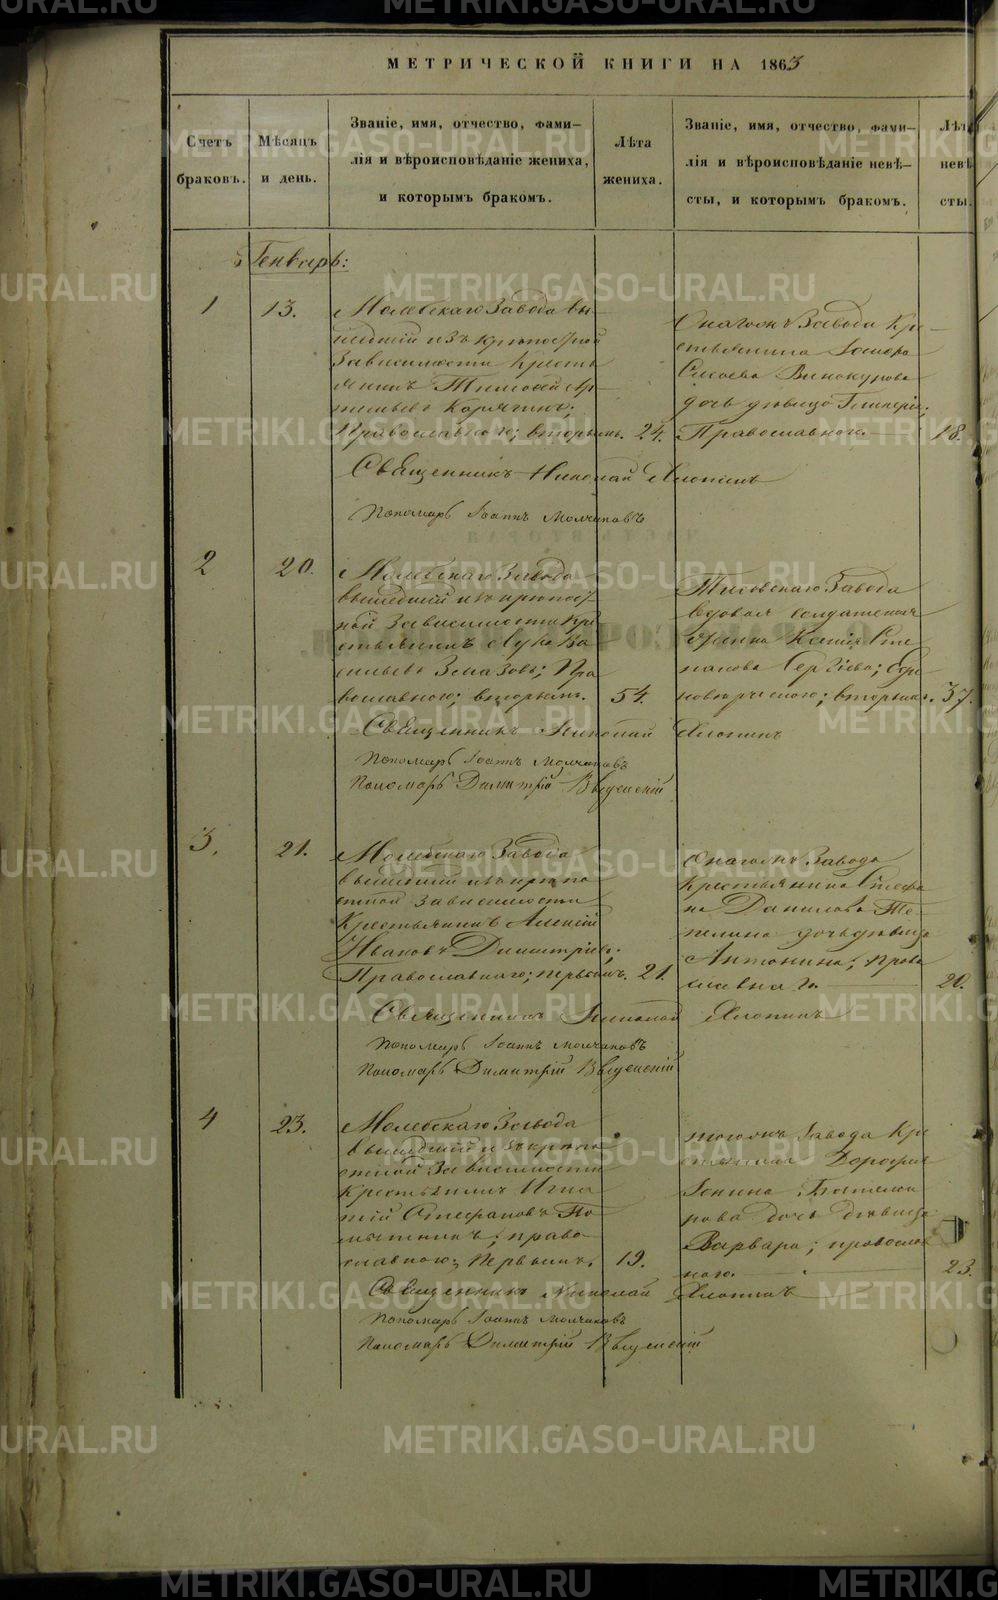 МЕТРИЧЕСКОЙ КНИГИ НА 1863
Счетъ браковъ.
Мѣсяцъ и день.
Званіе, имя, отчество, фами-
лія и вѣроисповѣданіе жениха,
и которымъ бракомъ.
Лѣта жениха.
Званіе, имя, отчество, фами-
лія и вѣроисповѣданіе невѣ-
сты, и которымъ бракомъ.
Лѣта
невѣ
сты.
Генварь:
1
13.
Молебскаго Завода вы-
шедшій изъ крѣпостной
зависимости Кресть
янинъ Тимофей Ар-
темьевъ Корякинъ;
Православнаго; вторымъ.
24.
Онагожъ Завода Кре-
стьянина
Сысоева Винокурова
дочь дѣвица Гликерія.
Православнаго.
18.
Священникъ Николай Хлопинъ
Пономарь Іоаннъ Молчановъ
2
20.
Молебскаго Завода
вышедшій изъ крѣпост
ной зависимости Кре
стьянинъ Лука Ва
сильевъ Зомазовъ; Пра
вославнаго; вторымъ.
54.
Тисовскаго Завода
вдовая солдатская
женка Ксенія Сте
панова Сергіева; Еди
новѣрческаго; вторымъ.
37.
Священникъ Николай Хлопинъ
Пономарь Іоаннъ Молчановъ
Пономарь Димитрій Введенскій
3.
21.
Молебскаго Завода
вышедшій изъ крѣпо
стной зависимости
Крестьянинъ Алексій
Ивановъ Димитріевъ;
Православнаго; первымъ.
21.
Онагожъ Завода
Крестьянина Стефа
на Данилова То-
пелина дочь дѣвица
Антонина; право
славнаго.
20.
Священникъ Николай Хлопинъ
Пономарь Іоаннъ Молчановъ
Пономарь Димитрій Введенскій
4
23.
Молебскаго Завода
вышедшій изъ крѣпо
стной зависимости
Крестьянинъ Игна
тій Стефановъ По
мыткинъ; право
славнаго; первымъ.
19.
тогожъ Завода Кре
стьянина Дорофея
Іонина
рова дочь дѣвица
Варвара; православ
наго.
23.
Священникъ Николай Хлопинъ
Пономарь Іоаннъ Молчановъ
Пономарь Димитрій Введенскій
METRIKI.GASO-URAL.RU